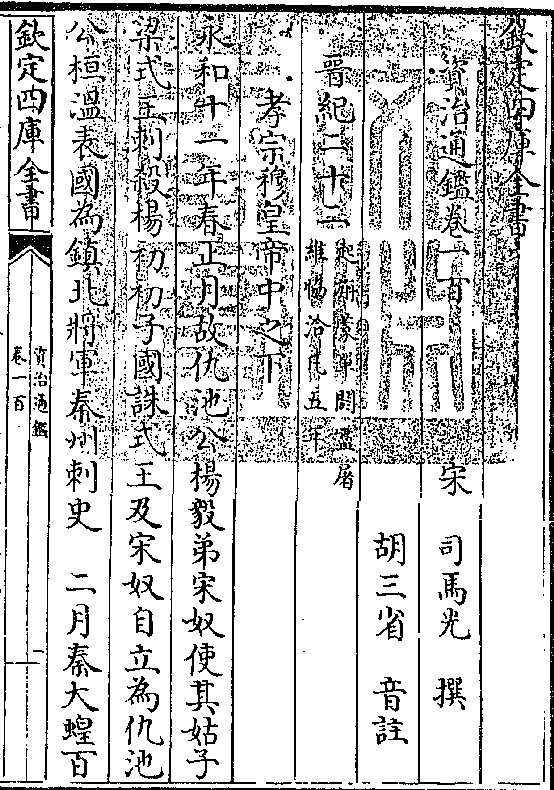 欽定四庫全書
資治通鑑卷一百
宋 司馬光 撰
胡三省 音註
晉紀二十二 起旃蒙單閼盡屠
維協洽凡五年
孝宗穆皇帝中之下
永和十一年春正月故仇池公楊毅弟宋奴使其姑子
梁式王刺殺楊初初子國誅式王及宋奴自立為仇池
公桓溫表國為鎮北將軍秦州刺史 二月秦大蝗百
欽定四庫全書
資治通鑑
卷一百
一